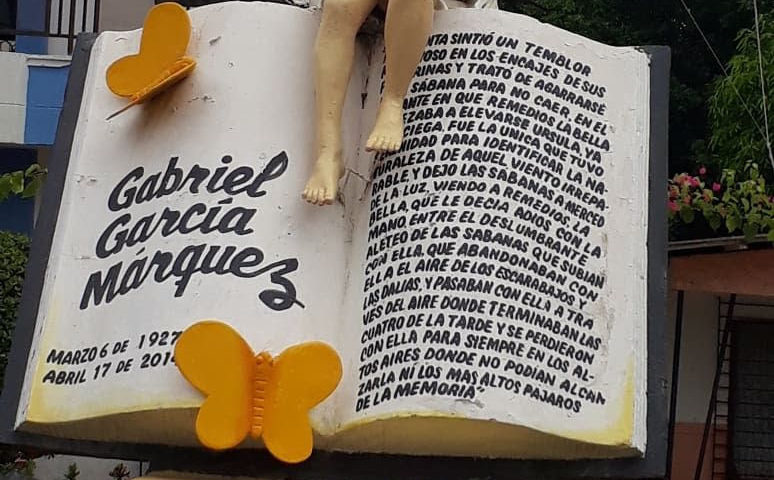 Gabriel
García
Márquez
MARZO 6 DE 1927
ABRIL 17 DE 2014
SINTIÓ UN TEMBLOR
EN LOS ENCAJES DE SUS
Y TRATÓ DE AGARRARSE
SÁBANA PARA NO CAER, EN EL
EN QUE REMEDIOS, LA BELLA
A ELEVARSE. URSULA, YA
CIEGA, FUE LA UNICA QUE TUVO
PARA IDENTIFICAR LA NA-
TURALEZA DE AQUEL VIENTO IRREPA-
RABLE Y DEJO LAS SABANAS A MERCED
DE LA LUZ, VIENDO A REMEDIOS, LA
BELLA, QUE LE DECIA ADIOS CON LA
MANO, ENTRE EL DESLUMBRANTE
ALETEO DE LAS SABANAS QUE SUBIAN
CON ELLA, QUE ABANDONABAN CON
ELLA EL AIRE DE LOS ESCARABAJOS Y
LAS DALIAS, Y PASABAN CON ELLA A TRA
VÉS DEL AIRE DONDE TERMINABAN LAS
CUATRO DE LA TARDE Y SE PERDIERON
CON ELLA PARA SIEMPRE EN LOS AL-
TOS AIRES DONDE NO PODIAN ALCAN
ZARLA NI LOS MAS ALTOS PAJAROS
DE LA MEMORIA"